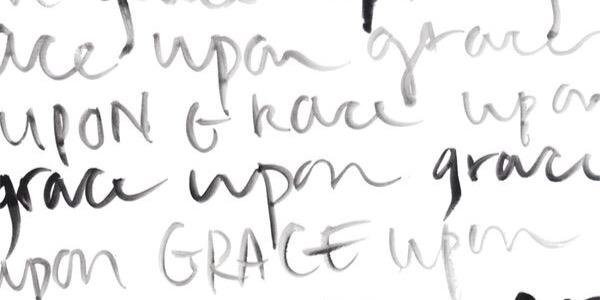 ace upon grace
UPON Grace upon
grace upon grace
upon GRACE upon